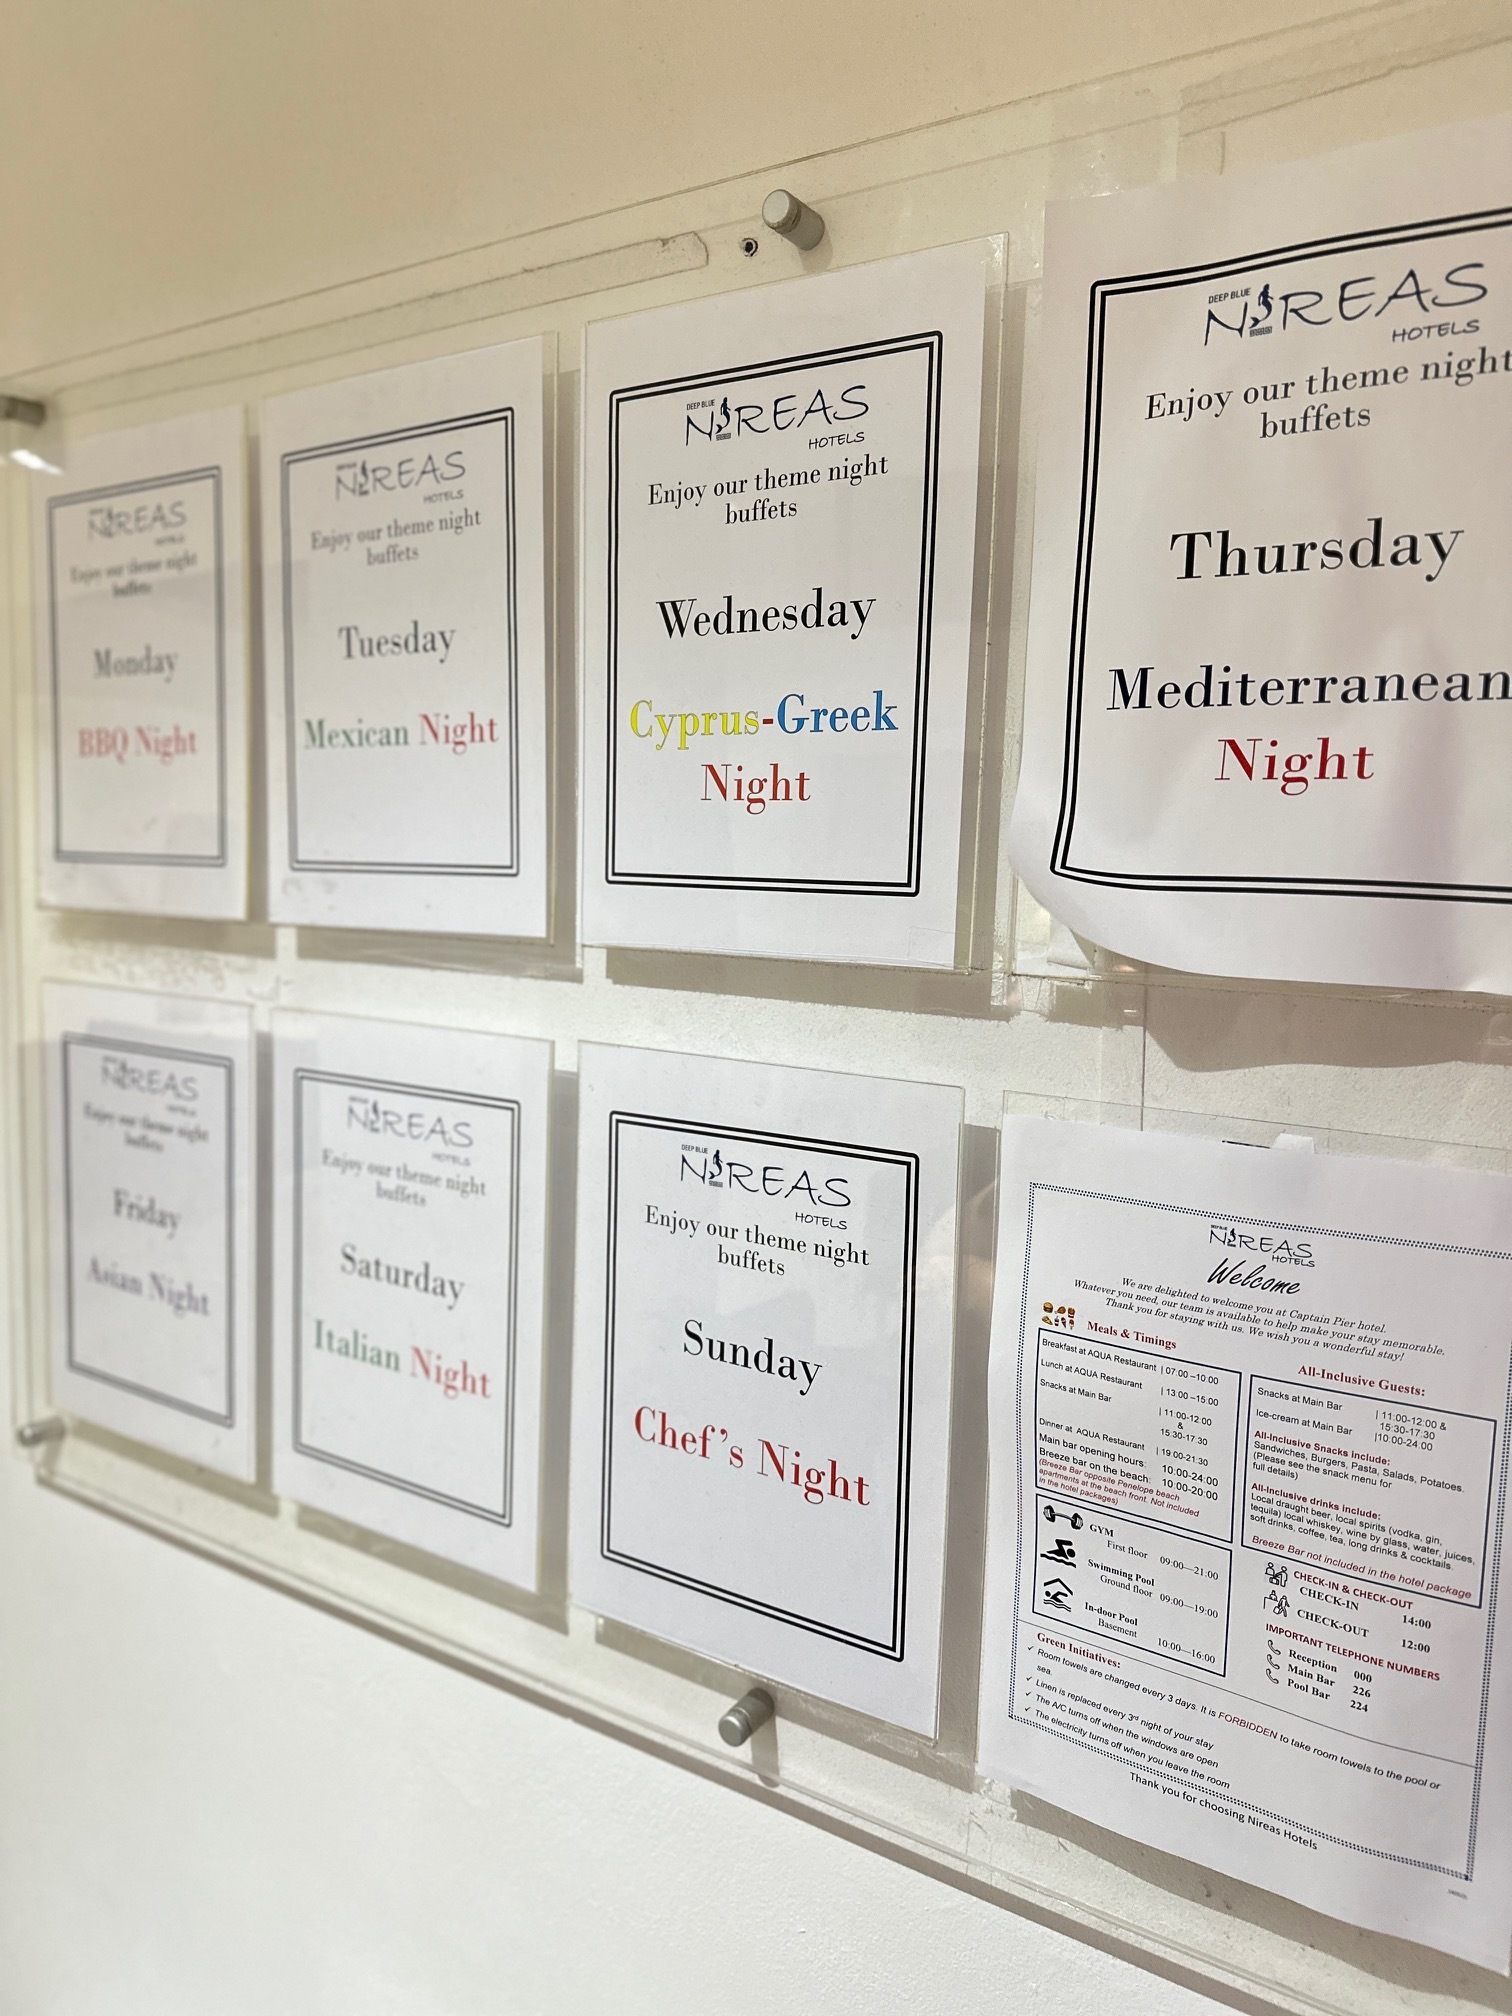 NIREAS
HOTELS
Enjoy our theme night
buffets
Monday
BBQ Night
NIREAS
HOTELS
Enjoy our theme night
buffets
Tuesday
Mexican Night
DEEP BLUE
NIREAS
HOTELS
Enjoy our theme night
buffets
Wednesday
Cyprus-Greek
Night
DEEP BLUE
NIREAS
HOTELS
Enjoy our theme night
buffets
Thursday
Mediterranean
Night
NIREAS
HOTELS
Enjoy our theme night
buffets
Friday
Asian Night
NIREAS
HOTELS
Enjoy our theme night
buffets
Saturday
Italian Night
DEEP BLUE
NIREAS
HOTELS
Enjoy our theme night
buffets
Sunday
Chef's Night
DEEP BLUE
NIREAS
HOTELS
Welcome
We are delighted to welcome you at Captain Pier hotel.
Whatever you need, our team is available to help make your stay memorable.
Thank you for staying with us. We wish you a wonderful stay!
Meals & Timings
Breakfast at AQUA Restaurant | 07:00 –10:00
Lunch at AQUA Restaurant | 13:00 –15:00
Snacks at Main Bar | 11:00-12:00
&
15:30-17:30
Dinner at AQUA Restaurant | 19:00-21:30
Main bar opening hours: 10:00-24:00
Breeze bar on the beach: 10:00-20:00
(Breeze Bar opposite Penelope beach
apartments at the beach front. Not included
in the hotel packages)
GYM
First floor 09:00—21:00
Swimming Pool
Ground floor 09:00—19:00
In-door Pool
Basement 10:00—16:00
All-Inclusive Guests:
Snacks at Main Bar | 11:00-12:00 &
15:30-17:30
Ice-cream at Main Bar |10:00-24:00
All-Inclusive Snacks include:
Sandwiches, Burgers, Pasta, Salads, Potatoes.
(Please see the snack menu for
full details)
All-Inclusive drinks include:
Local draught beer, local spirits (vodka, gin,
tequila) local whiskey, wine by glass, water, juices,
soft drinks, coffee, tea, long drinks & cocktails.
Breeze Bar not included in the hotel package
CHECK-IN & CHECK-OUT
CHECK-IN 14:00
CHECK-OUT 12:00
IMPORTANT TELEPHONE NUMBERS
Reception 000
Main Bar 226
Pool Bar 224
Green Initiatives:
✓ Room towels are changed every 3 days. It is FORBIDDEN to take room towels to the pool or
sea.
✓ Linen is replaced every 3rd night of your stay
✓ The A/C turns off when the windows are open
✓ The electricity turns off when you leave the room
Thank you for choosing Nireas Hotels